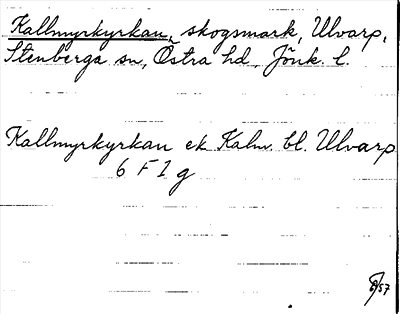 Kallmyrkyrkan, skogsmark, Ulvarp,
Stenberga sn, Östra hd, Jönk. l.
Kallmyrkyrkan ek Kalm. bl. Ulvarp
6 F 1 g